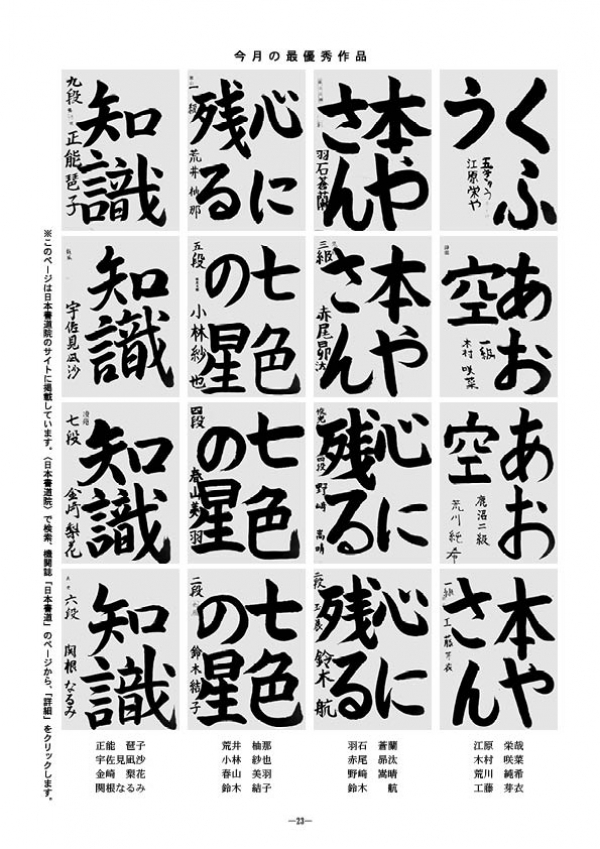 今月の最優秀作品
知識
九段 正能琶子
心に
残る
荒井柚那
本や
さん
羽石蒼蘭
くふ
う
江原栄や
知識
宇佐見凪沙
七色
の星
五段 小林紗也
本や
さん
三級 赤尾昴汰
あお
空
一級
木村咲菜
知識
七段 金崎梨花
七色
の星
四段 春山美羽
心に
残る
四段 野崎嵩晴
あお
空
鹿沼二級
荒川純希
知識
六段 関根なるみ
七色
の星
二段 鈴木結子
心に
残る
二段 鈴木航
本や
さん
一級 工藤芽衣
※このページは日本書道院のサイトに掲載しています。〈日本書道院〉で検索、機関誌「日本書道」のページから、「詳細」をクリックします。
正能 琶子 荒井 柚那 羽石 蒼蘭 江原 栄哉
宇佐見凪沙 小林 紗也 赤尾 昴汰 木村 咲菜
金崎 梨花 春山 美羽 野崎 嵩晴 荒川 純希
関根なるみ 鈴木 結子 鈴木 航 工藤 芽衣
—23—